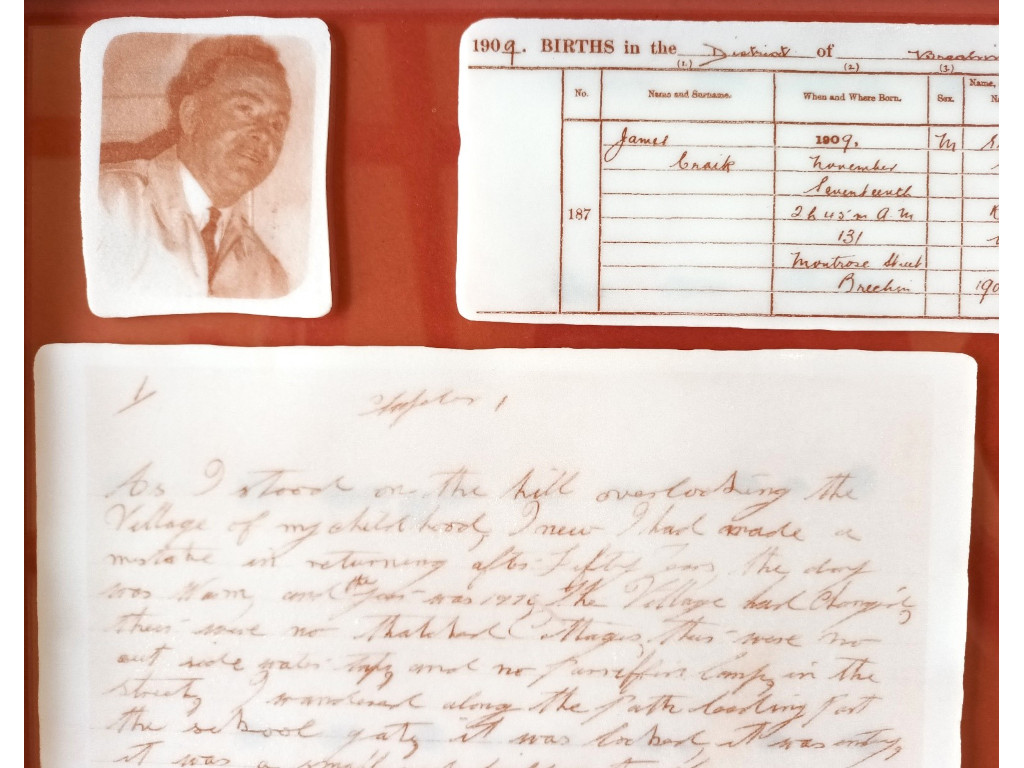 1909. BIRTHS in the District of
(1) (2) (3)
No. Name and Surname. When and Where Born. Sex. Name,
James 1909, M
Craik November
Seventeenth
187 2 h 45 m A.M
131
Montrose Street
Brechin 190
1/ Chapter 1
As I stood on the hill overlooking the
Village of my childhood, I new I had made a
mistake in returning after Fifty Years the day
was Warm, and the Year was 1976, The Village had Changed,
their were no thatched Cottages, their were no
out side water taps, and no Parriffin lamps, in the
Streets, I wandered along the Path leading Past
the school gate, it was locked, it was empty,
it was a small